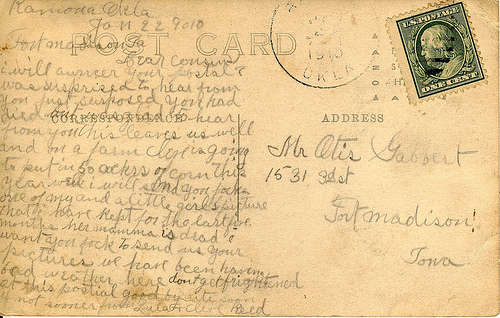 Ramona Okla
Jan 22 1910
Fort madison Ia
POST CARD
Dear cousin
i will auncer your postal
was surprised to hear from
you just suposed you had
died
to hear
CORRESPONDENCE
from you this leaves us well
and on a farm Cleo is going
to put in 50 ackers of corn this
year well i will send you fock
one of my and a little girls picture
that i have kept for the last five
months her mamma is dead
want you fock to send us your
picturs we have been having
bad weather here dont get frightened
at this postal good by rite soon
if not sooner from Lula & Cleo Reed
OKLA
U.S. POSTAGE
ONE CENT
ADDRESS
Mr Otis Gabbert
1531 32st
Fort madison
Iowa